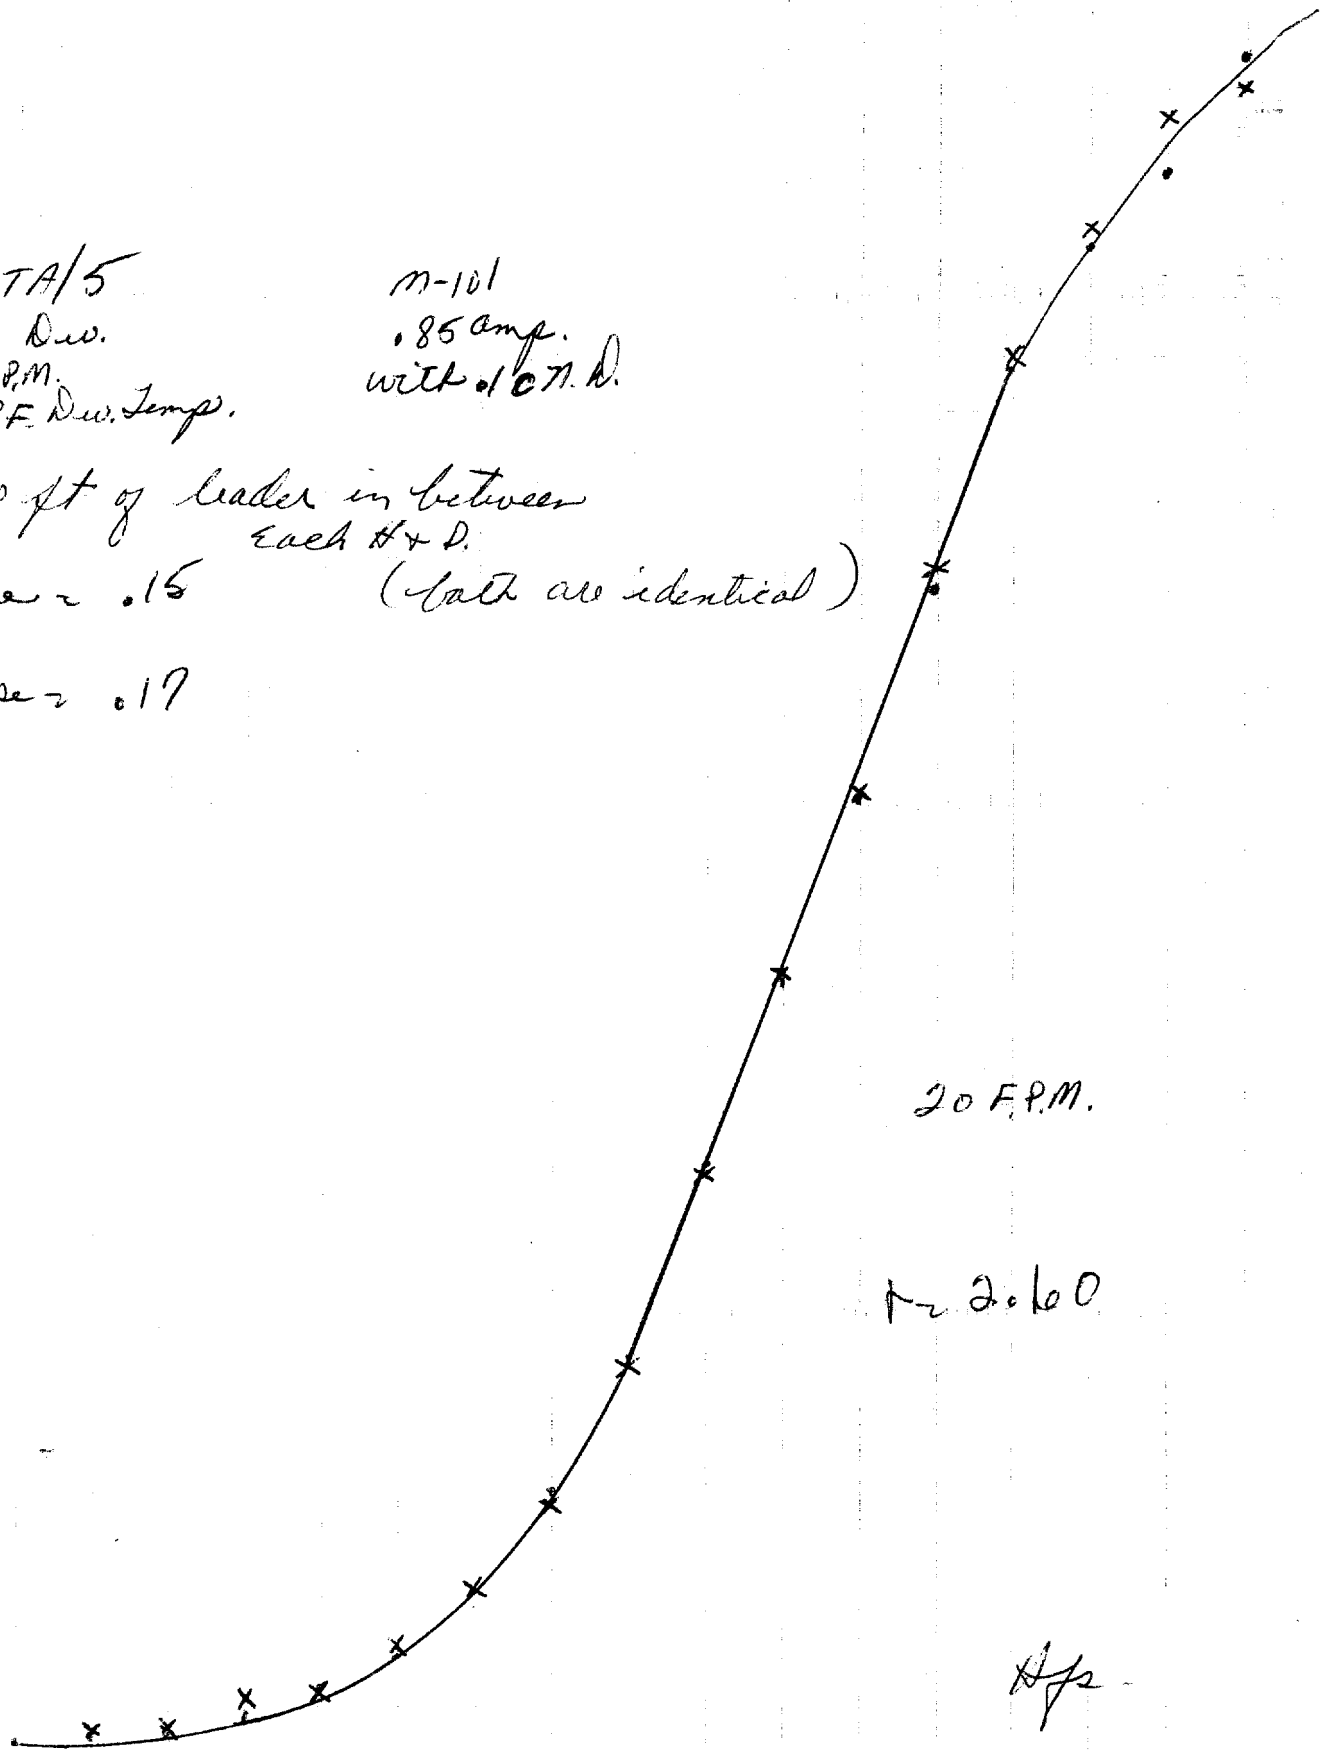 TA/5
Dev.
P.M.
°F. Dev. Temp.
M-101
.85 amp.
with .10 N.D.
ft of leader in between
Each H & D.
= .15
(both are identical)
= .17
20 F.P.M.
= 2.60